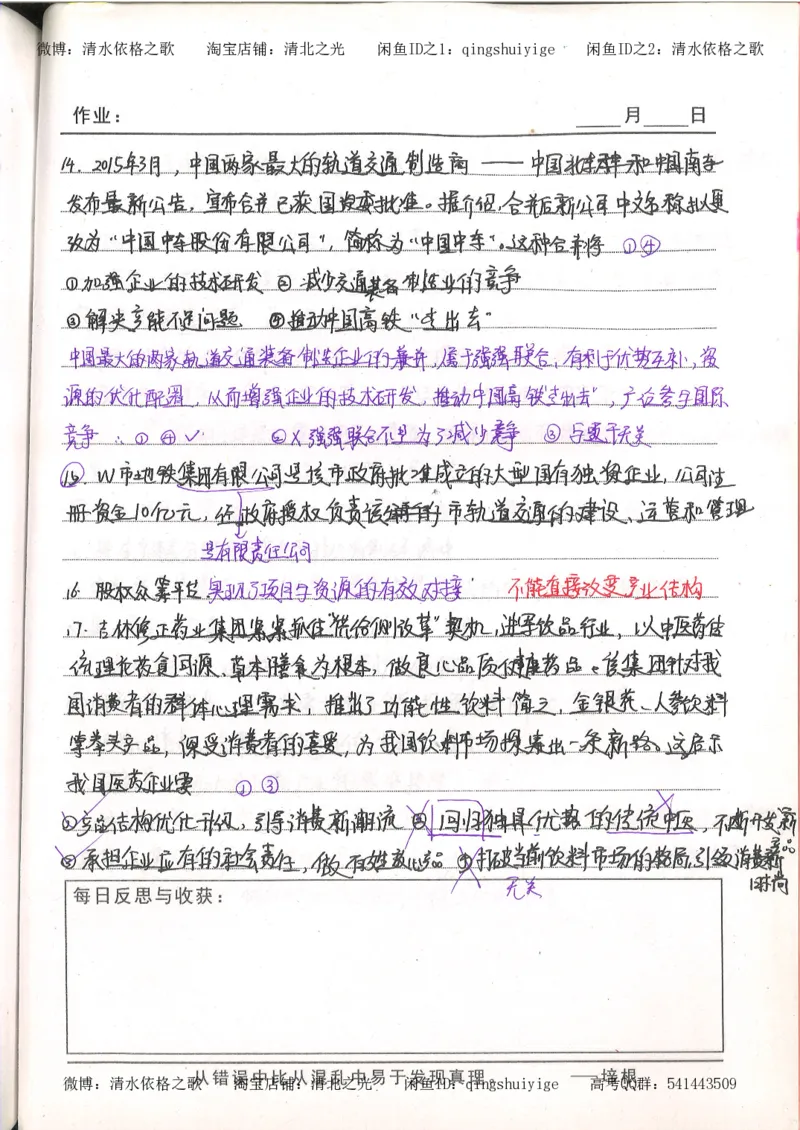 微博：清水依格之歌 淘宝店铺：清北之光 闲鱼ID之1：qingshuiyige 闲鱼ID之2：清水依格之歌
作业： 月 日
14. 2015年3月，中国两家最大的轨道交通制造商——中国北车和中国南车
发布最新公告，宣布合并已获国资委批准。据介绍，合并后新公司中文名称拟更
改为“中国中车股份有限公司”，简称为“中国中车”。这种合并将 ①④
①加强企业的技术研发 ②减少交通装备制造业的竞争
③解决产能不足问题 ④推动中国高铁“走出去”
中国最大的两家轨道交通装备制造企业的兼并，属于强强联合，有利于优势互补，资
源的优化配置，从而增强企业的技术研发，推动中国高铁“走出去”，广泛参与国际
竞争 ∴①④✓ ②×强强联合不是为了减少竞争 ③与题干无关
15. W市地铁集团有限公司是该市政府批准成立的大型国有独资企业，公司注
册资金10亿元，经政府授权负责该市轨道交通的建设、运营和管理
是有限责任公司
16. 股权众筹平台实现了项目与资源的有效对接 不能直接改变产业结构
17. 吉林修正药业集团紧紧抓住“供给侧改革”契机，进军饮品行业，以中医药传
统理论药食同源、草本膳食为根本，做良心品质健康药品。该集团针对我
国消费者的群体心理需求，推出了功能性饮料简之，金银花、人参饮料
等拳头产品，深受消费者的喜爱，为我国饮料市场探索出一条新路。这启示
我国医药企业要 ①③
①产品结构优化升级，引导消费新潮流 ②回归独具优势的传统中医，不断开发新
产品
③承担企业应有的社会责任，做百姓放心产品 ④打破当前饮料市场的格局，引领消费新
时尚
无关
每日反思与收获：
从错误中比从混乱中易于发现真理。 ——培根
微博：清水依格之歌 淘宝店铺：清北之光 闲鱼ID：qingshuiyige 高考QQ群：541443509